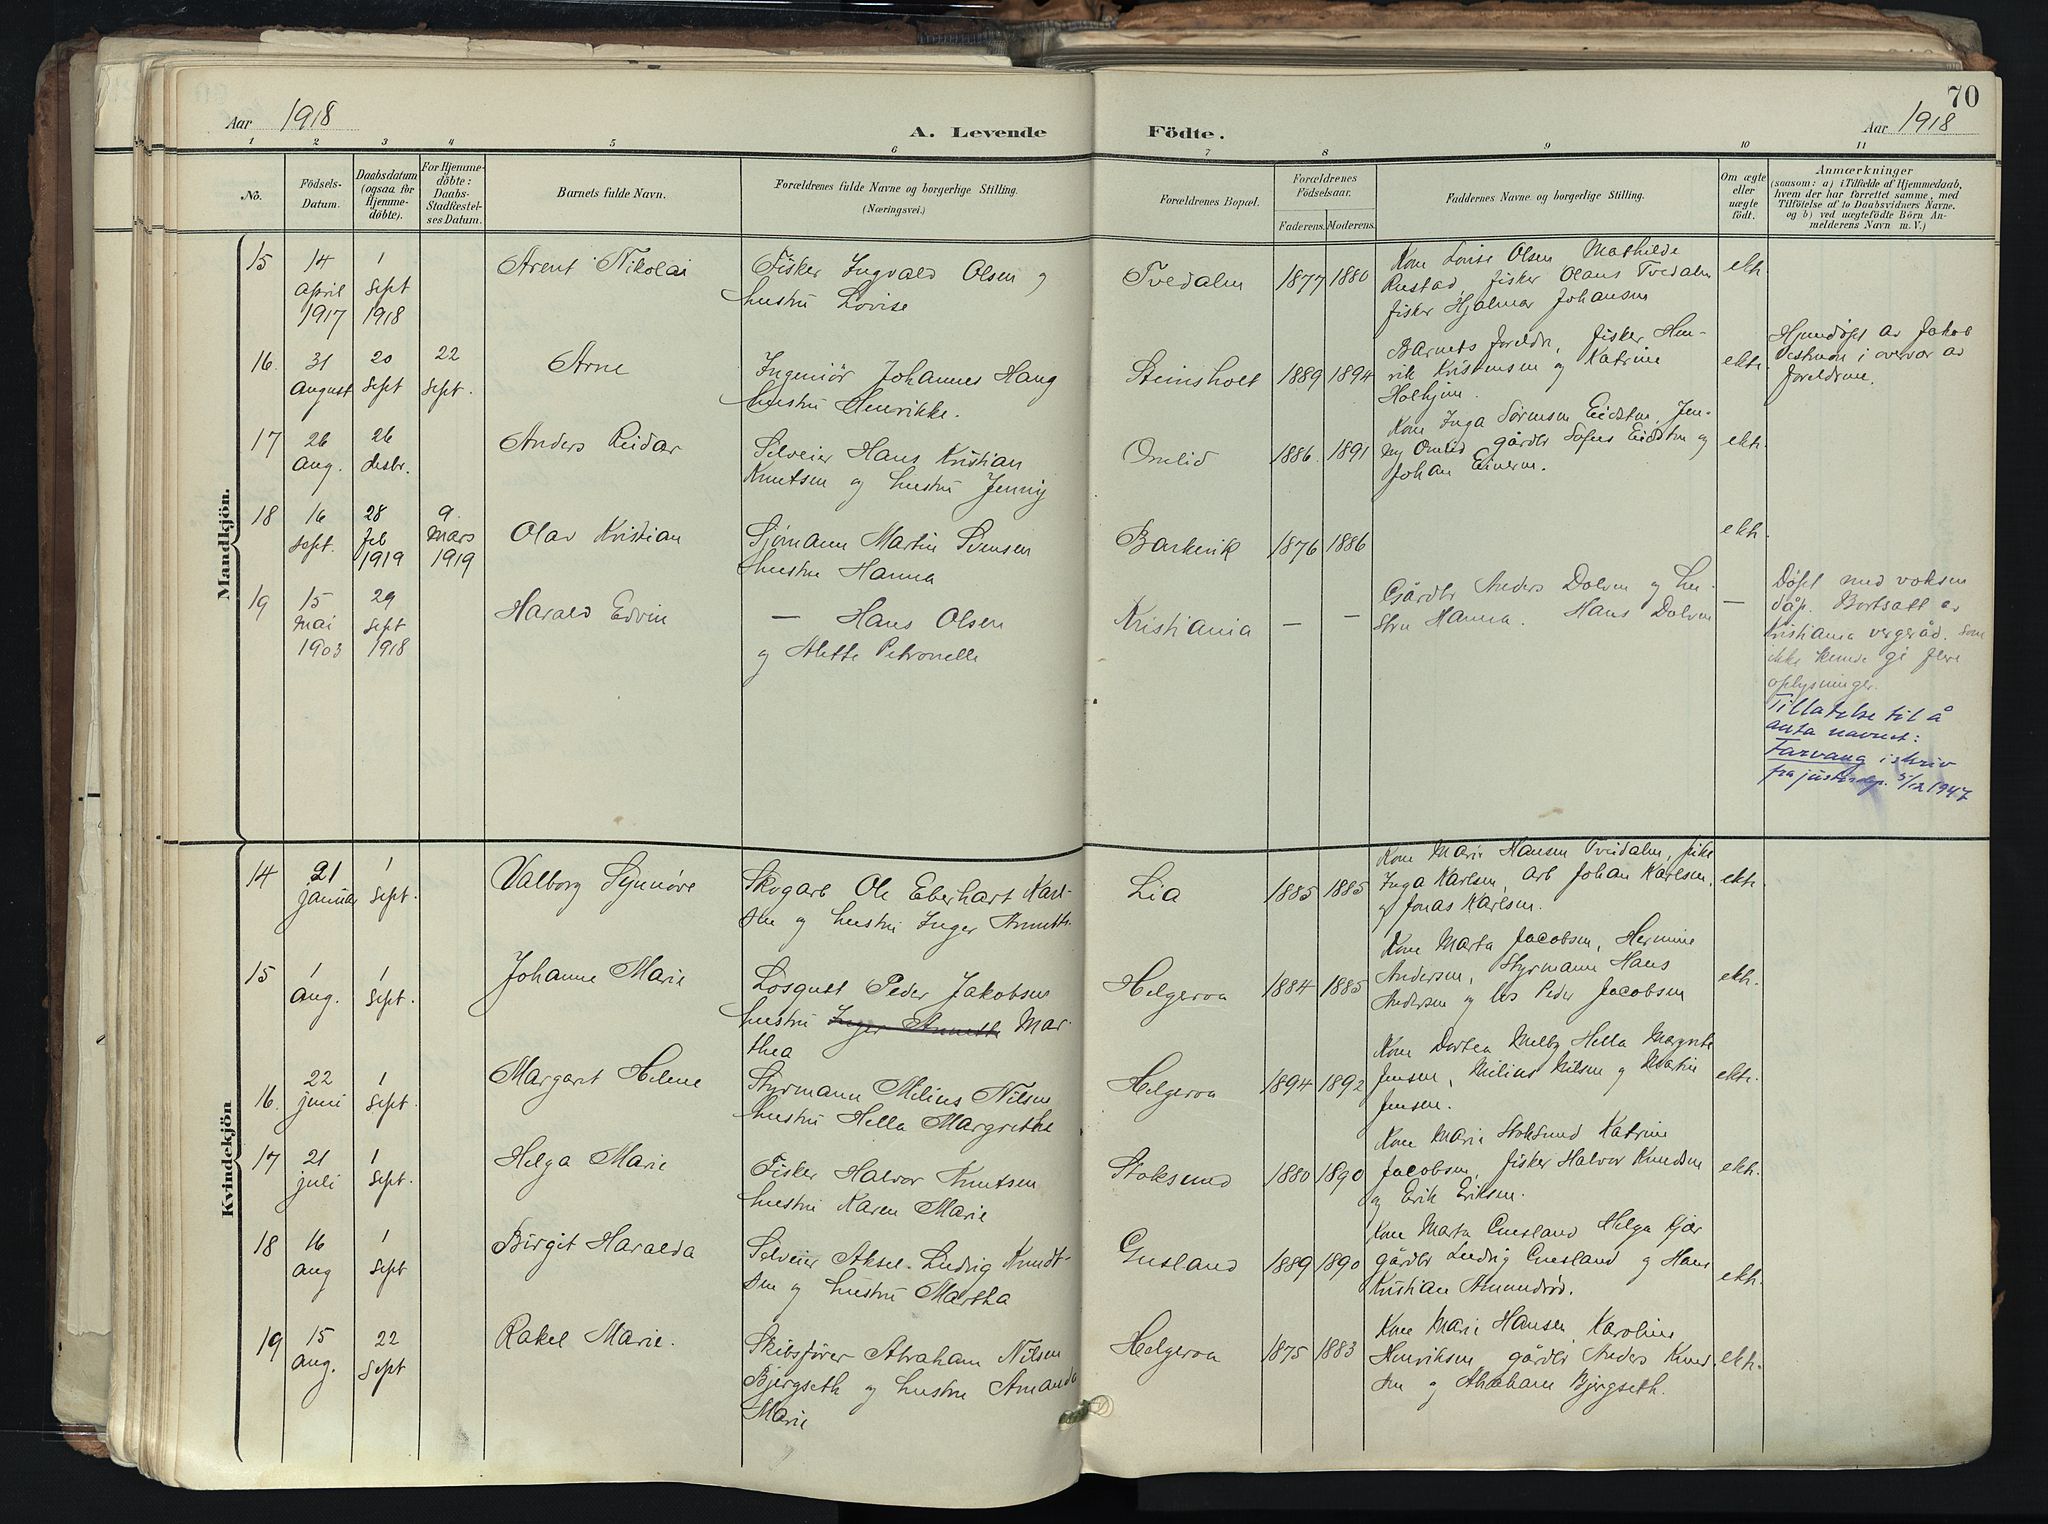 70
Aar 1918
A. Levende Födte.
Aar 1918
1 2 3 4 5 6 7 8 9 10 11
No.
Födsels-
Datum.
Daabsdatum
(ogsaa for
Hjemme-
döbte).
For Hjemme-
döbte:
Daabs-
Stadfæstel-
ses Datum.
Barnets fulde Navn.
Forældrenes fulde Navne og borgerlige Stilling.
(Næringsvei.)
Forældrenes Bopæl.
Forældrenes
Födselsaar.
Faderens. Moderens.
Faddernes Navne og borgerlige Stilling.
Om ægte
eller
uægte
födt.
Anmærkninger
(saasom: a) i Tilfælde af Hjemmedaab,
hvem der har forrettet samme, med
Tilföielse af to Daabsvidners Navne.
og b) ved uægtefödte Börn An-
melderens Navn m. V.)
Mandkjön.
15
14
april
1917
1
sept
1918
Arent Nikolai
Fisker Ingvald Olsen og
hustru Lovise
Tvedalen
1877 1880
Kone Lovise Olsen Mathilde
Rustad, fisker Olaus Tvedalen
fisker Hjalmar Johansen
ekt.
16.
31
August
20
sept
22
sept.
Arne
Ingeniør Johannes Haug
hustru Henrikke.
Steinsholt
1889 1894
Barnets foreldre, fisker Hen-
rik Kristensen og Katrine
Holhjem.
ekt.
Hjemdøpt av Jakob
Vestmoen i overvær av
foreldrene.
17
26
Aug.
26
desbr.
Anders Reidar
Selveier Hans Kristian
Knutsen og hustru Jenny
Omlid
1886. 1891
Kone Inga Sørensen Eidsten, Jen-
ny Omlid gårdbr Sofus Eidsten og
Johan Eineren.
ekt.
18
16
sept.
28
Feb
1919
9.
Mars
1919
Olav Kristian
Sjømann Martin Svensen
hustru Hanna
Barkevik
1876 1886
ekt.
19
15
mai
1903
29
sept
1918
Harald Edvin
— Hans Olsen
og Alette Petronelle
Kristiania
— —
Gårdbr Anders Dolven og hu-
stru Hanna. Hans Dolven
—
Døpt med voksen
dåp. Bortsatt av
Kristiania vergeråd. som
ikke kunde gi flere
oplysninger.
Tillatelse til å
anta navnet:
Farvang i skriv
fra justisdep. 5/12 1947
Kvindekjön
14
21
januar
1
sept.
Valborg Synnøve
Skogarb Ole Eberhart Karl-
sen og hustru Inger Annette.
Lia
1885 1885
Kone Marie Hansen Tveidalen, pike
Inga Karlsen, arb Johan Karlsen,
og Jonas Karlsen.
ekt.
15
1
Aug.
1
sept.
Johanne Marie
Losgutt Peder Jakobsen
hustru Inger Annette Mar-
thea
Helgeroa
1884 1885
Kone Marta Jacobsen, Hermine
Andersen, Styrmann Hans
Andersen og los Peder Jacobsen
ekt.
16.
22
juni
1
sept.
Margaret Helene
Styrmann Milius Nilsen
hustru Hella Margrethe
Helgeroa
1894 1892
Kone Dortea Melby Hella Margrete
Jensen, Milius Nilsen og Martin
Jensen.
ekt.
17
21
juli
1
sept.
Helga Marie
Fisker Halvor Knutsen
hustru Karen Marie
Stoksund
1880 1890
Kone Marie Stoksund Katrine
Jacobsen, fisker Halvor Knudsen
og Erik Eriksen.
ekt.
18
16
aug
1
sept
Birgit Haralda
Selveier Aksel Ludvig Knudt-
sen og hustru Martha
Gusland
1889 1890
Kone Marta Gusland Helga Kjær
gårdbr Ludvig Gusland og Hans
Kristian Amundrød.
ekt.
19
15
Aug.
22
sept
Rakel Marie.
Skibsfører Abraham Nilsen
Bjergseth og hustru Amanda
Marie
Helgeroa
1875 1883
Kone Marie Hansen, Karoline
Henriksen, gårdbr Anders Knud
sen og Abraham Bjergseth.
ekt.